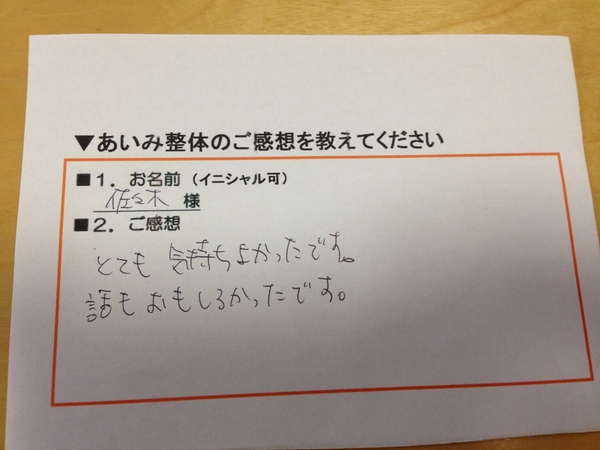 ▼あいみ整体のご感想を教えてください
■1．お名前（イニシャル可）
佐々木 様
■2．ご感想
とても気持ちよかったです。
話もおもしろかったです。